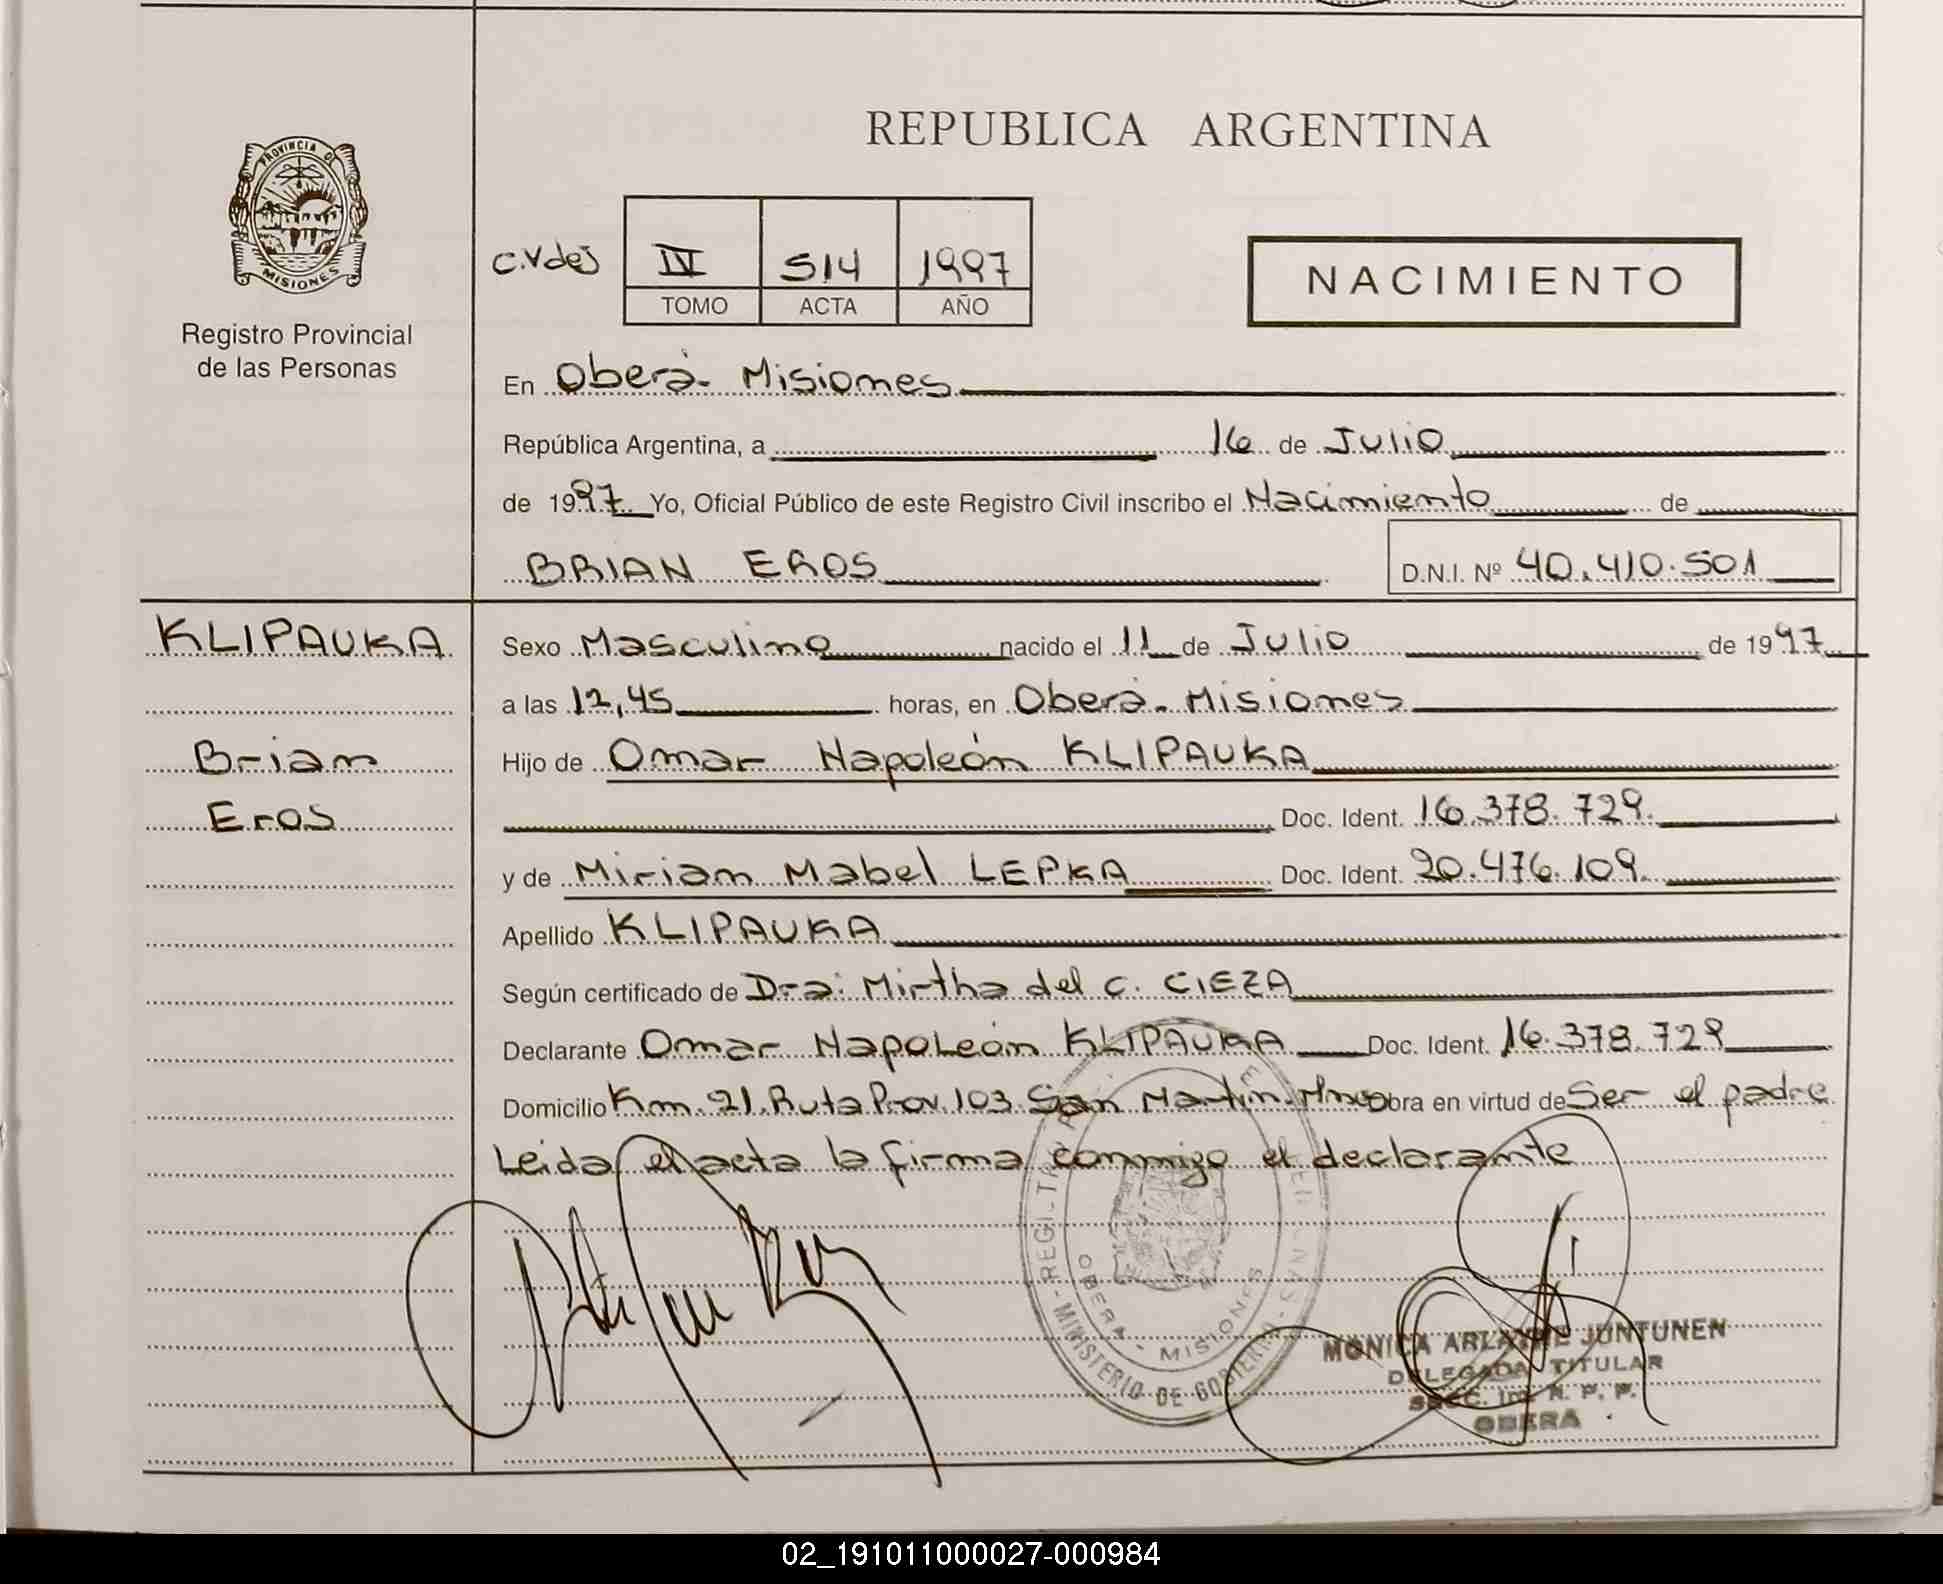 REPUBLICA ARGENTINA
PROVINCIA DE
MISIONES
Registro Provincial
de las Personas
C.Vdes IV 514 1997
TOMO ACTA AÑO
NACIMIENTO
En Oberá- Misiones
República Argentina, a 16 de Julio
de 1997 Yo, Oficial Público de este Registro Civil inscribo el Nacimiento de
BRIAN EROS D.N.I. Nº 40.410.501
KLIPAUKA
Brian
Eros
Sexo Masculino nacido el 11 de Julio de 1997
a las 12,45 horas, en Oberá. Misiones
Hijo de Omar Napoleón KLIPAUKA
Doc. Ident. 16.378.729.
y de Miriam Mabel LEPKA Doc. Ident. 20.476.109.
Apellido KLIPAUKA
Según certificado de Dra: Mirtha del C. CIEZA
Declarante Omar Napoleón KLIPAUKA Doc. Ident. 16.378.729
Domicilio Km. 21. Ruta Prov. 103 San Martín. obra en virtud de Ser el padre
Leida el acta la firma conmigo el declarante
MINISTERIO DE GOBIERNO
OBERA - MISIONES
MONICA JUNTUNEN
DELEGADA TITULAR
OBERA
02_191011000027-000984